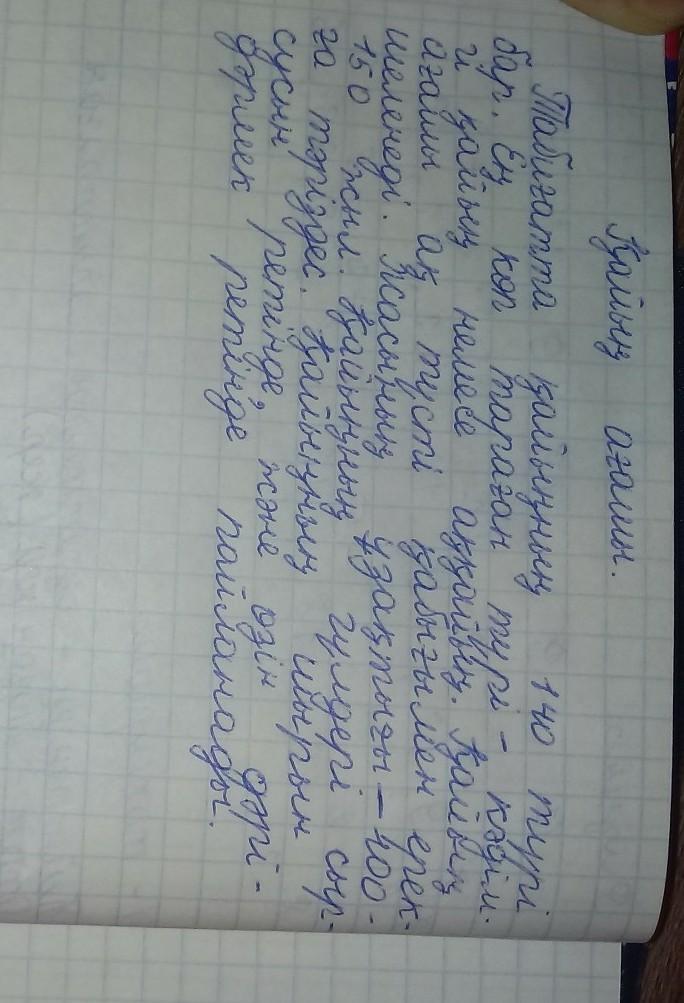 Қайың ағашы.
Табиғатта қайыңның 140 түрі
бар. Ең көп тараған түрі - кәдім-
гі қайың немесе аққайың. Қайың
ағашы ақ түсті қабығымен ерек-
шеленеді. Жасының ұзақтығы - 100-
150 жыл. Қайыңның гүлдері сыр-
ға тәріздес. Қайыңның шырын
сусын ретінде, және өзін дәрі-
дәрмек ретінде пайланады.